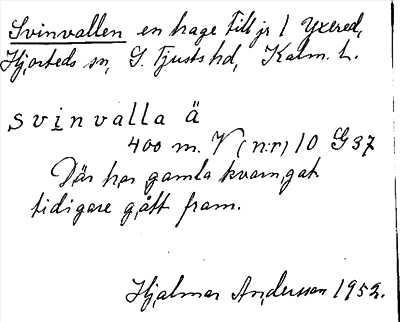 Svinvallen en hage till jr 1 Yxered,
Hjorteds sn, S. Tjusts hd, Kalm. L.
svinvalla ä
400 m. V (n:r) 10 G 37
Där har gamla kvarn,gat
tidigare gått fram.
Hjalmar Andersson 1952.